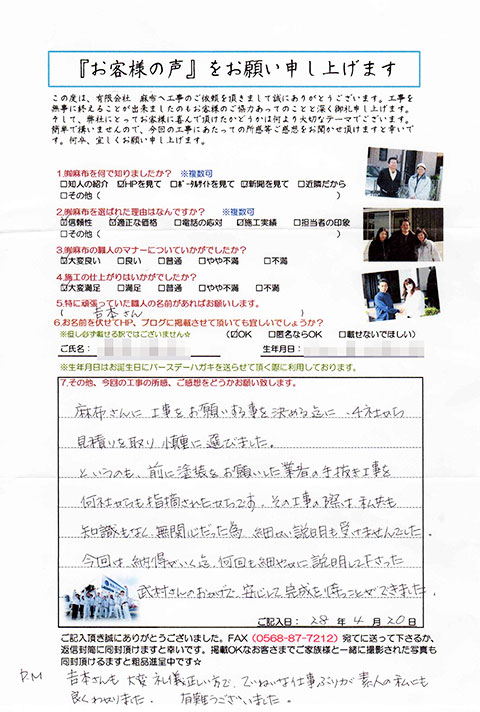 『お客様の声』をお願い申し上げます
この度は、有限会社 麻布へ工事のご依頼を頂きまして誠にありがとうございます。工事を
無事に終えることが出来ましたのもお客様のご協力あってのことと深く御礼申し上げます。
そして、弊社にとってお客様に喜んで頂けたかどうかは何より大切なテーマでございます。
簡単で構いませんので、今回の工事にあたっての所感等ご感想をお聞かせ頂けますと幸いで
す。何卒、宜しくお願い申し上げます。
1.㈲麻布を何で知りましたか? ※複数可
□知人の紹介 ☑HPを見て □ポータルサイトを見て ☑新聞を見て □近隣だから
□その他( )
2.㈲麻布を選ばれた理由はなんですか? ※複数可
☑信頼性 ☑適正な価格 □電話の応対 ☑施工実績 □担当者の印象
□その他( )
3.㈲麻布の職人のマナーについていかがでしたか?
☑大変良い □良い □普通 □やや不満 □不満
4.施工の仕上がりはいかがでしたか?
☑大変満足 □満足 □普通 □やや不満 □不満
5.特に頑張っていた職人の名前があればお願いします。
( 吉本さん )
6.お名前を伏せてHP、ブログに掲載させて頂いても宜しいでしょうか?
※但し必ず載せる訳ではございません☆ (☑OK □匿名ならOK □載せないでほしい)
ご氏名: 生年月日:
※生年月日はお誕生日にバースデーハガキを送らせて頂く際に利用しております。
7.その他、今回の工事の所感、ご感想をどうかお願い致します。
麻布さんに工事をお願いする事を決める迄に、4社から
見積りを取り慎重に選びました。
というのも、前に塗装をお願いした業者の手抜き工事を
何社からも指摘されたからです。その工事の際は、私共も
知識もなく、無関心だった為、細かい説明も受けませんでした。
今回は、納得がいく迄、何回も細やかに説明して下さった
武村さんのおかげで、安心して完成を待つことができました。
ご記入日: 28 年 4 月 20 日
ご記入頂き誠にありがとうございました。FAX (0568-87-7212) 宛てに送って下さるか、
返信封筒に同封頂けますと幸いです。掲載OKなお客さまでご家族様と一緒に撮影された写真も
同封頂けるますと粗品進呈中です☆
P.M 吉本さんも大変礼儀正しい方で、ていねいな仕事ぶりが素人の私にも
良くわかりました。 有難うございました。